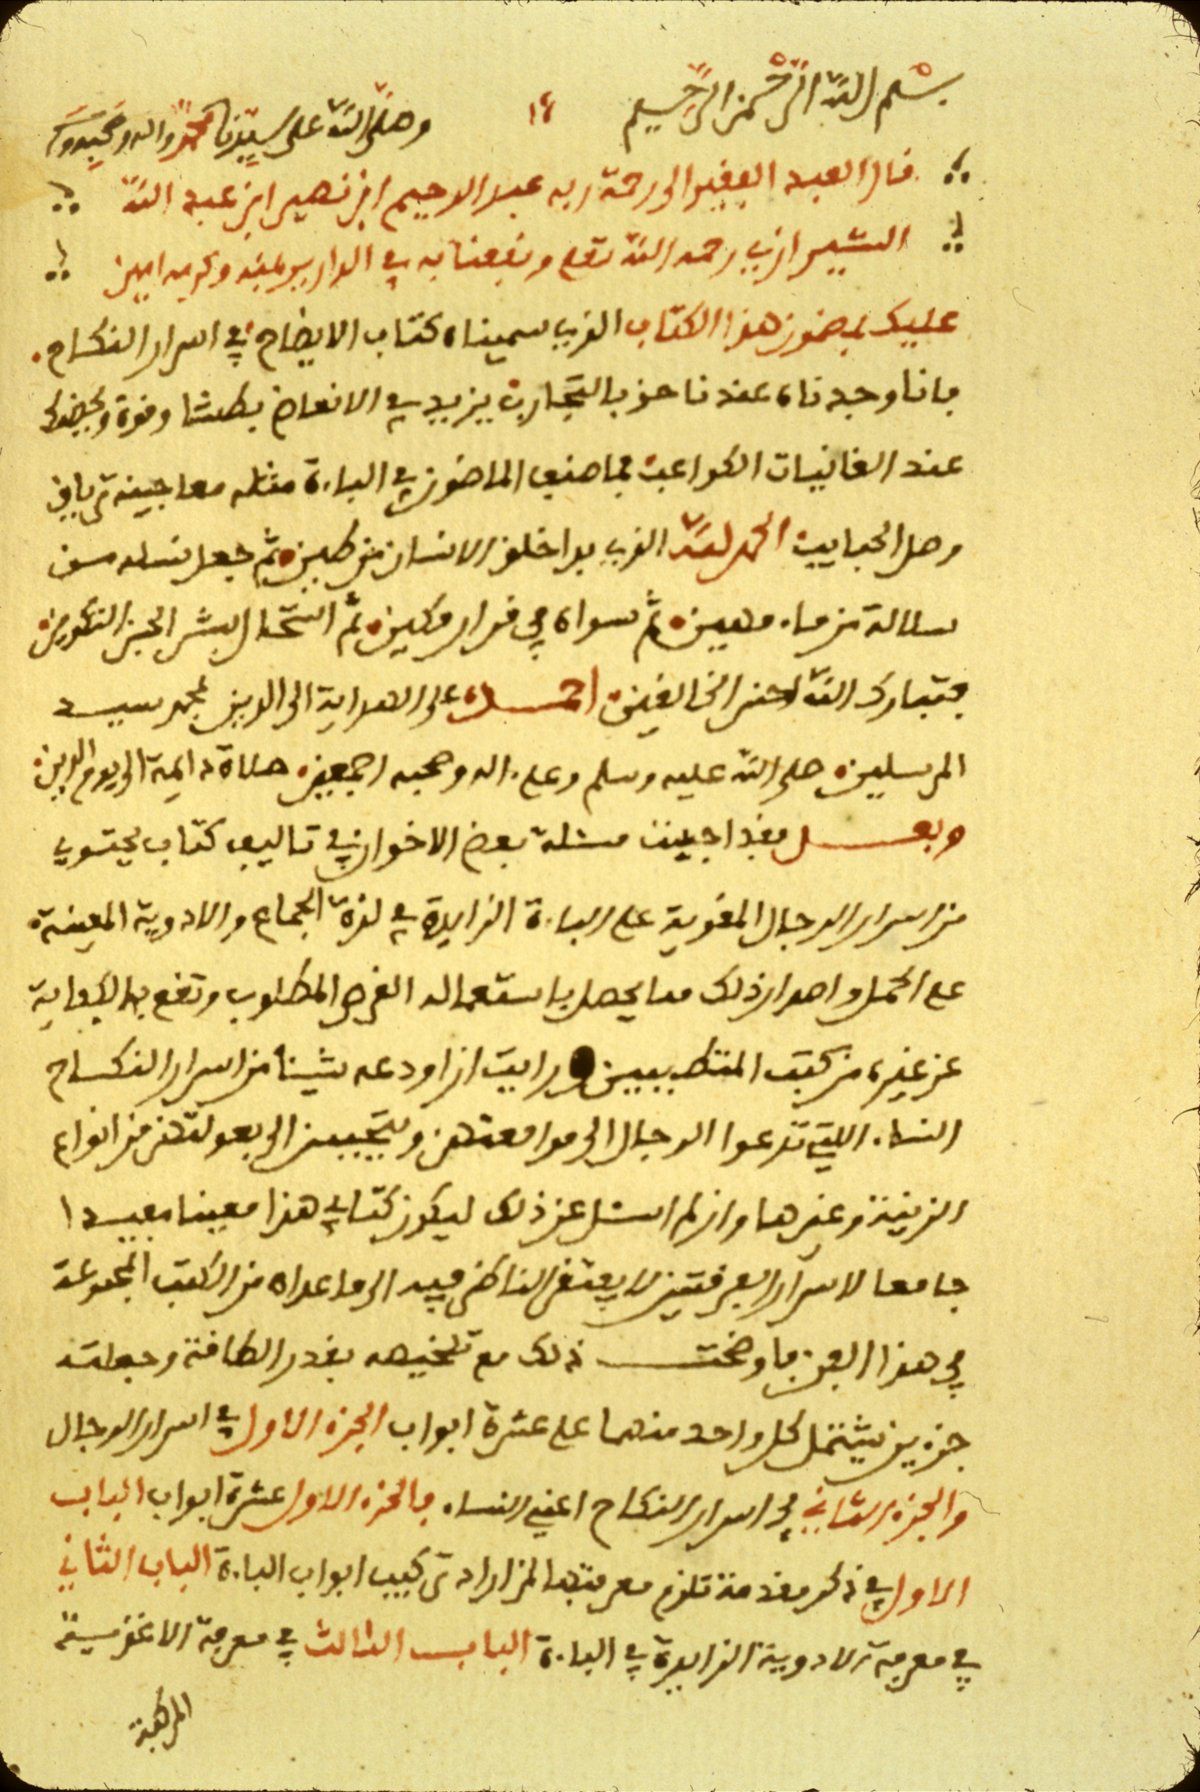 بسم الله الرحمن الرحيم ١٤ وصلى الله على سيدنا محمد واله وصحبه وسلم
قال العبد الفقير الى رحمة ربه عبد الرحيم ابن نصير ابن عبد الله
الشيرازي رحمه الله تعلى ونفعنا به في الدارين بمنه وكرمه امين
عليك بمضمون هذا الكتاب الذي سميناه كتاب الايضاح في اسرار النكاح
فانا وجدناه عندنا حق بالتجارب يزيد في الانعاض بطشا وقوة
عند الغانيات الكواعب فما صنف الماضون في الباءة مثله معاجينه ترياق
وصل الحبايب الحمد لله الذي بدا خلق الانسان من طين ثم جعل نسله من
سلالة من ماء مهين ثم سواه في قرار مكين ثم استحال بشر التكوين
فتبارك الله احسن الخالقين احمده على الهداية الى الدين بمحمد سيد
المرسلين صلى الله عليه وسلم وعلى اله وصحبه اجمعين صلاة دايمة الى يوم الدين
وبعد فقد اجبت مسئلة بعض الاخوان في تاليف كتاب يحتوي
من اسرار الرجال المقوية على الباءة الزايدة في لذة الجماع والادوية المعينة
على الحمل واصدار ذلك مما يحصل باستعماله الغرض المطلوب وتقع به الكفاية
عن غيره من كتب المتطببين ورايت ان اودعه شيئا من اسرار النكاح
النساء اللتي تدعوا الرجال الى مواقعتهن ويحببهن الى بعولتهن من انواع
الزينة وغيرها وان لم اسئل عن ذلك ليكون كتابي هذا معينا مفيدا
جامعا لاسرار الفرقتين لا يفتقر الناظر فيه الى ما عداه من الكتب المجموعة
في هذا الفن فاوضحت ذلك مع تلخيصه بقدر الطاقة وجعلته
جزءين يشتمل كل واحد منهما على عشرة ابواب الجزء الاول في اسرار الرجال
والجزء الثاني في اسرار النكاح اعني النساء فالجزء الاول عشرة ابواب الباب
الاول في ذكر مقدمة تلزم معرفتها لمن اراد تركيب ابواب الباءة الباب الثاني
في معرفة الادوية الزايدة في الباءة الباب الثالث في معرفة الاغذية
المركبة